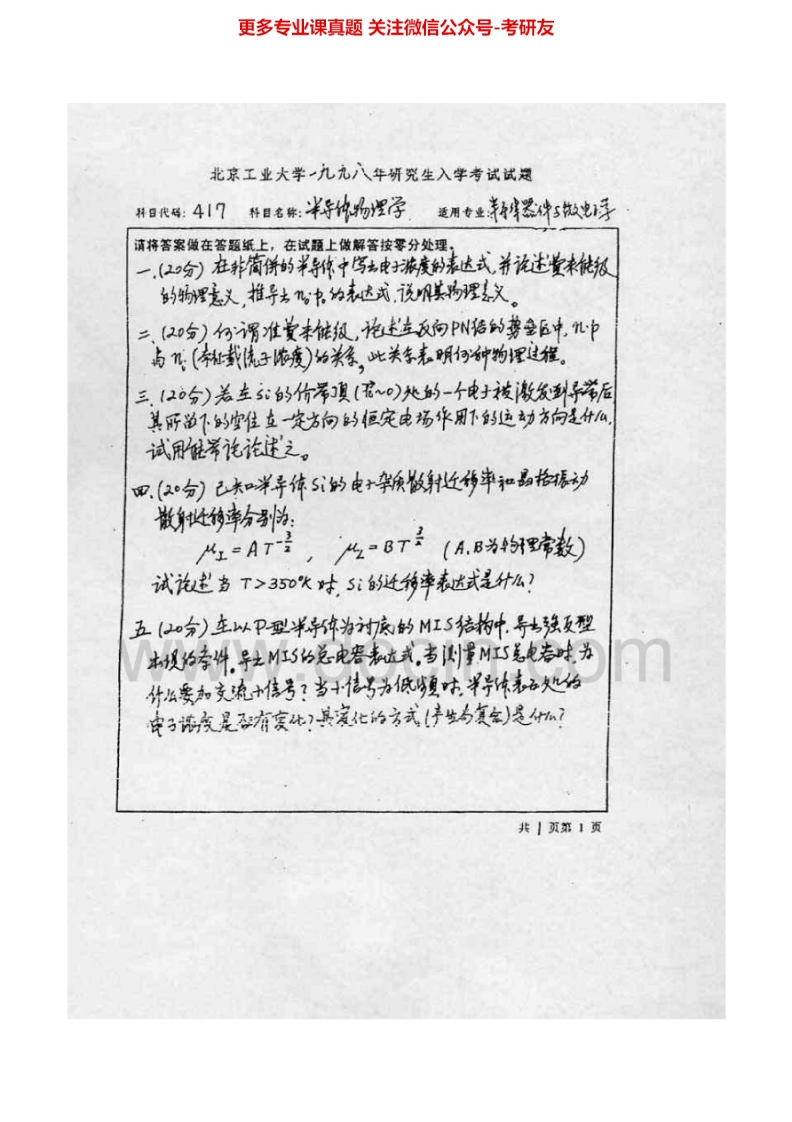 更多专业课真题 关注微信公众号-考研友
北京工业大学一九九八年研究生入学考试试题
科目代码: 417 科目名称: 半导体物理学 适用专业: 半导体器件与微电子学
请将答案做在答题纸上，在试题上做解答按零分处理。
一.(20分) 在非简併的半导体中写出电子浓度的表达式,并论述费米能级
的物理意义,推导出n₀·p₀的表达式,说明其物理意义。
二.(20分) 何谓准费米能级,论述在反向PN结的势垒区中,n·p
与nᵢ(本征载流子浓度)的关系,此关系表明何种物理过程。
三.(20分) 若在Si的价带顶(k~0)处的一个电子被激发到导带后
其所留下的空位在一定方向的恒定电场作用下的运动方向是什么,
试用能带论论述之。
四.(20分) 已知半导体Si的电子杂质散射迁移率和晶格振动
散射迁移率分别为:
μI = A T^-3/2 , μL = B T^3/2 (A.B为物理常数)
试论述当 T>350°K时,Si的迁移率表达式是什么?
五.(20分) 在以P型半导体为衬底的MIS结构中,导出强反型
出现的条件。导出MIS的总电容表达式。当测量MIS总电容时,为
什么要加交流小信号?当小信号为低频时,半导体表面处的
电子浓度是否有变化?其变化的方式(产生与复合)是什么?
共 1 页第 1 页
www.docin.com